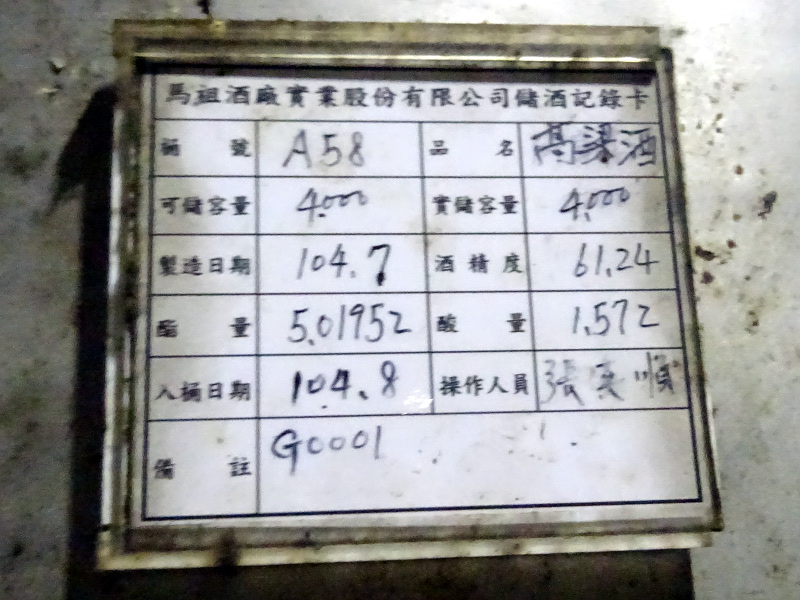 馬祖酒廠實業股份有限公司儲酒記錄卡
桶號 A58 品名 高粱酒
可儲容量 4.000 實儲容量 4.000
製造日期 104.7 酒精度 61.24
酯量 5.01952 酸量 1.572
入桶日期 104.8 操作人員 張 順
備註 G0001